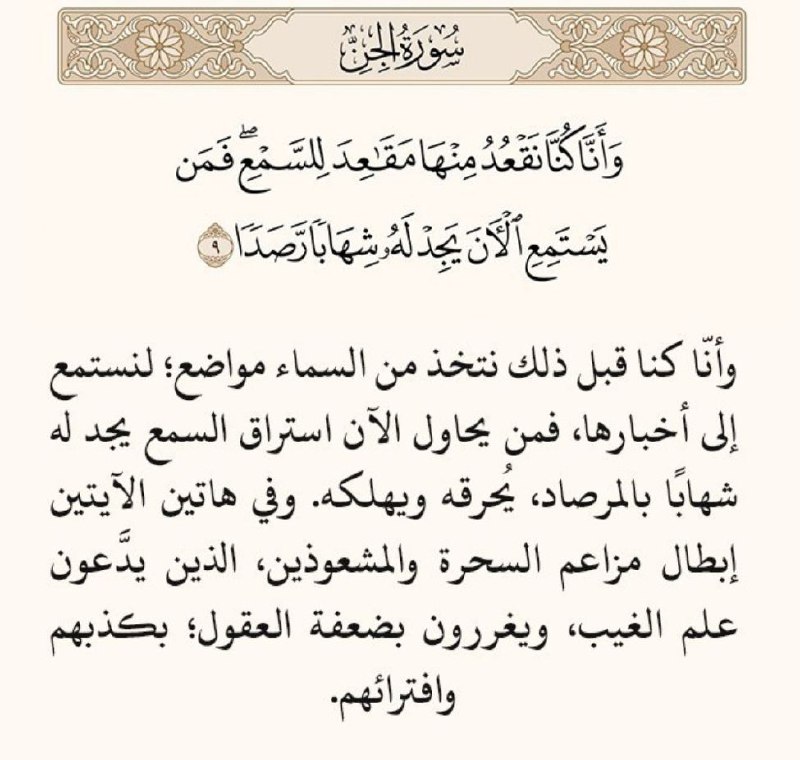 سُورَةُ الجِنِّ
وَأَنَّا كُنَّا نَقۡعُدُ مِنۡهَا مَقَٰعِدَ لِلسَّمۡعِۖ فَمَن
يَسۡتَمِعِ ٱلۡأٓنَ يَجِدۡ لَهُۥ شِهَابٗا رَّصَدٗا ٩
وأنّا كنا قبل ذلك نتخذ من السماء مواضع؛ لنستمع
إلى أخبارها، فمن يحاول الآن استراق السمع يجد له
شهابًا بالمرصاد، يُحرقه ويهلكه. وفي هاتين الآيتين
إبطال مزاعم السحرة والمشعوذين، الذين يدَّعون
علم الغيب، ويغررون بضعفة العقول؛ بكذبهم
وافترائهم.